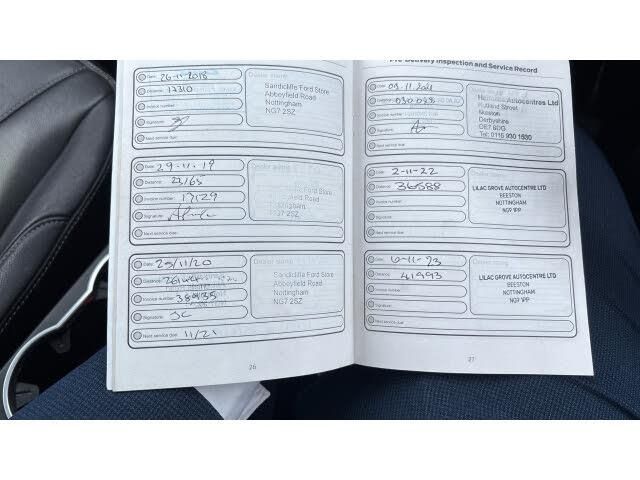 Pre-Delivery Inspection and Service Record
Date: 26-11-2018
Distance: 17310
Invoice number:
Signature:
Next service due:
Dealer stamp
Sandicliffe Ford Store
Abbeyfield Road
Nottingham
NG7 2SZ
Date: 29-11-19
Distance: 23,165
Invoice number: 17129
Signature:
Next service due:
Dealer stamp
Ford Store
Road
NG7 2SZ
Date: 25/11/20
Distance:
Invoice number:
Signature: JC
Next service due: 11/21
Dealer stamp
Sandicliffe Ford Store
Abbeyfield Road
Nottingham
NG7 2SZ
26
Date: 09.11.2021
Distance:
Invoice number:
Signature:
Next service due:
Autocentres Ltd
Rutland Street
Ilkeston
Derbyshire
DE7 8DG
Tel: 0115 930 1530
Date: 2-11-22
Distance: 36588
Invoice number:
Signature:
Next service due:
LILAC GROVE AUTOCENTRE LTD
BEESTON
NOTTINGHAM
NG9 1PP
Date: 6-11-23
Distance: 41993
Invoice number:
Signature:
Next service due:
Dealer stamp
LILAC GROVE AUTOCENTRE LTD
BEESTON
NOTTINGHAM
NG9 1PP
27